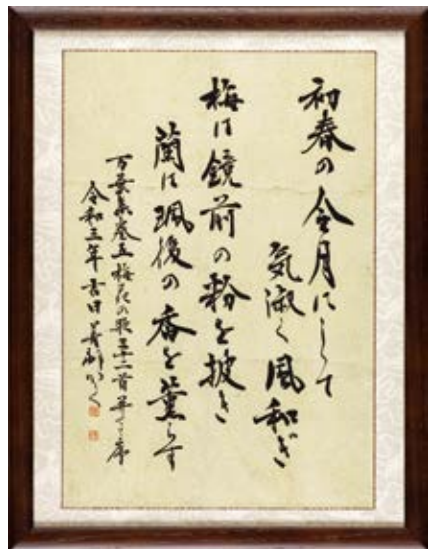 初春の令月にして
気淑く風和ぎ
梅は鏡前の粉を披き
蘭は珮後の香を薫らす
万葉集巻五梅花の歌三十二首并せて序
令和三年 吉田 かく